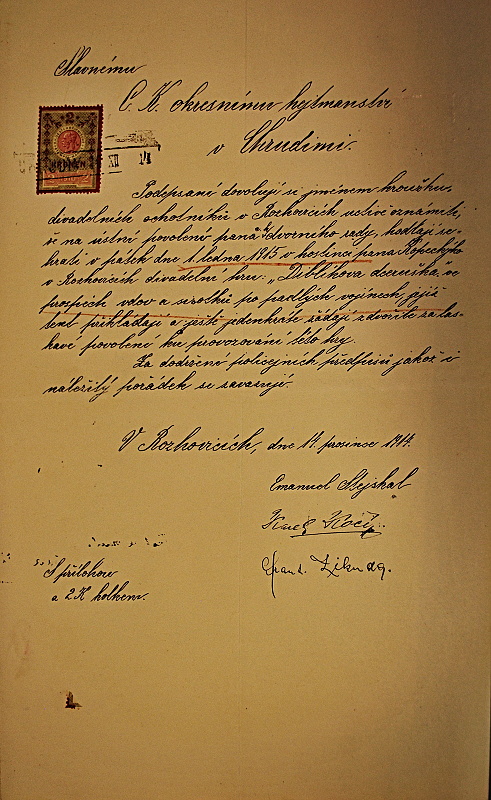 Slavnému
C. K. okresnímu hejtmanství
v Chrudimi.
2
XII 14
Podepsaní dovolují si jménem kroužku
divadelních ochotníků v Rozhovicích uctivě oznámiti,
že na ústní povolení pana c.k. dvorního rady, hodlají se-
hráti v pátek dne 1. ledna 1915 v hostinci pana Kopeckého
v Rozhovicích divadelní hru: „Diblíkova dceruška ve
prospěch vdov a sirotků po padlých vojínech, jejíž
text přikládají a ještě jedenkráte žádají zdvořile za las-
kavé povolení ku provozování této hry.
Za dodržení policejních předpisů jakož i
náležitý pořádek se zavazují.
V Rozhovicích, dne 14. prosince 1914.
Emanuel Stejskal
Karel Kočí
Frant. Zikmda.
S přílohou
a 2 K kolkem.